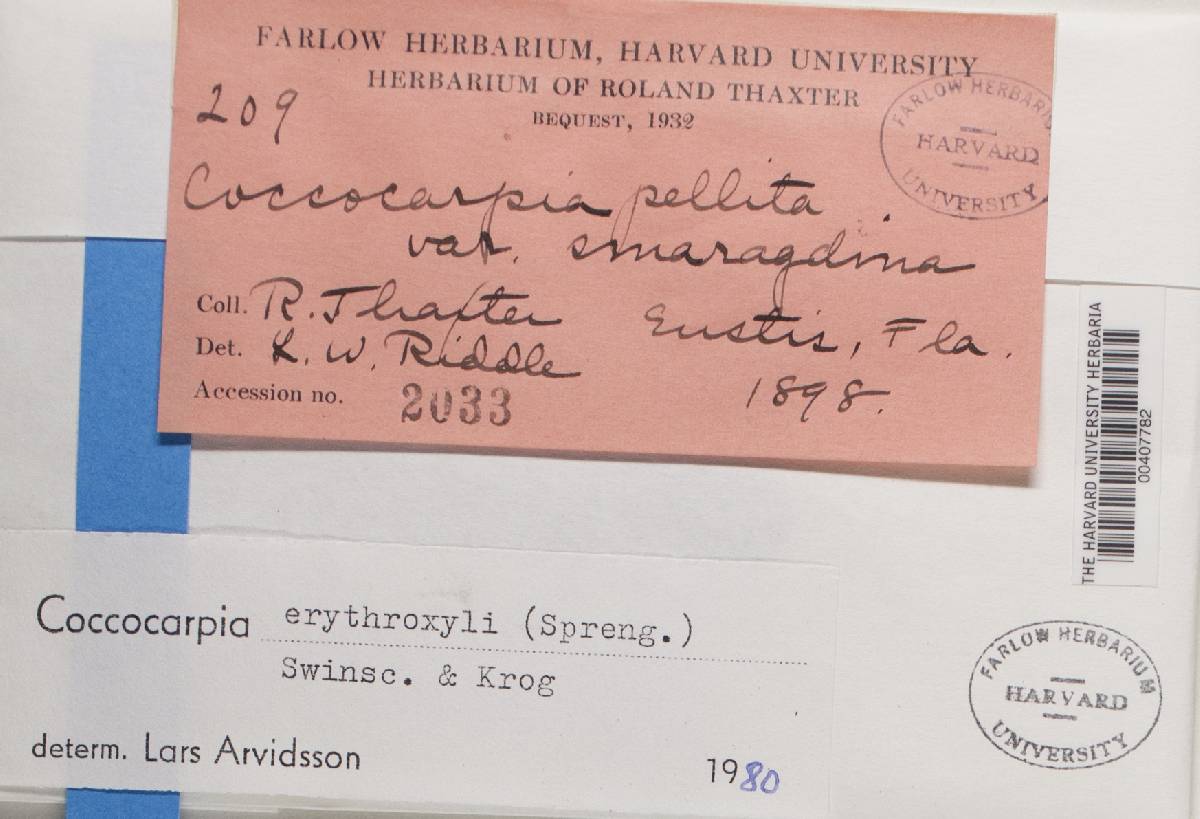 FARLOW HERBARIUM, HARVARD UNIVERSITY
HERBARIUM OF ROLAND THAXTER
BEQUEST, 1932
209
FARLOW HERBARIUM
HARVARD
UNIVERSITY
Coccocarpia pellita
var. smaragdina
Coll. R. Thaxter Eustis, Fla.
Det. L. W. Riddle 1898.
Accession no. 2033
THE HARVARD UNIVERSITY HERBARIA
00407782
Coccocarpia erythroxyli (Spreng.)
Swinsc. & Krog
determ. Lars Arvidsson 1980
FARLOW HERBARIUM
HARVARD
UNIVERSITY